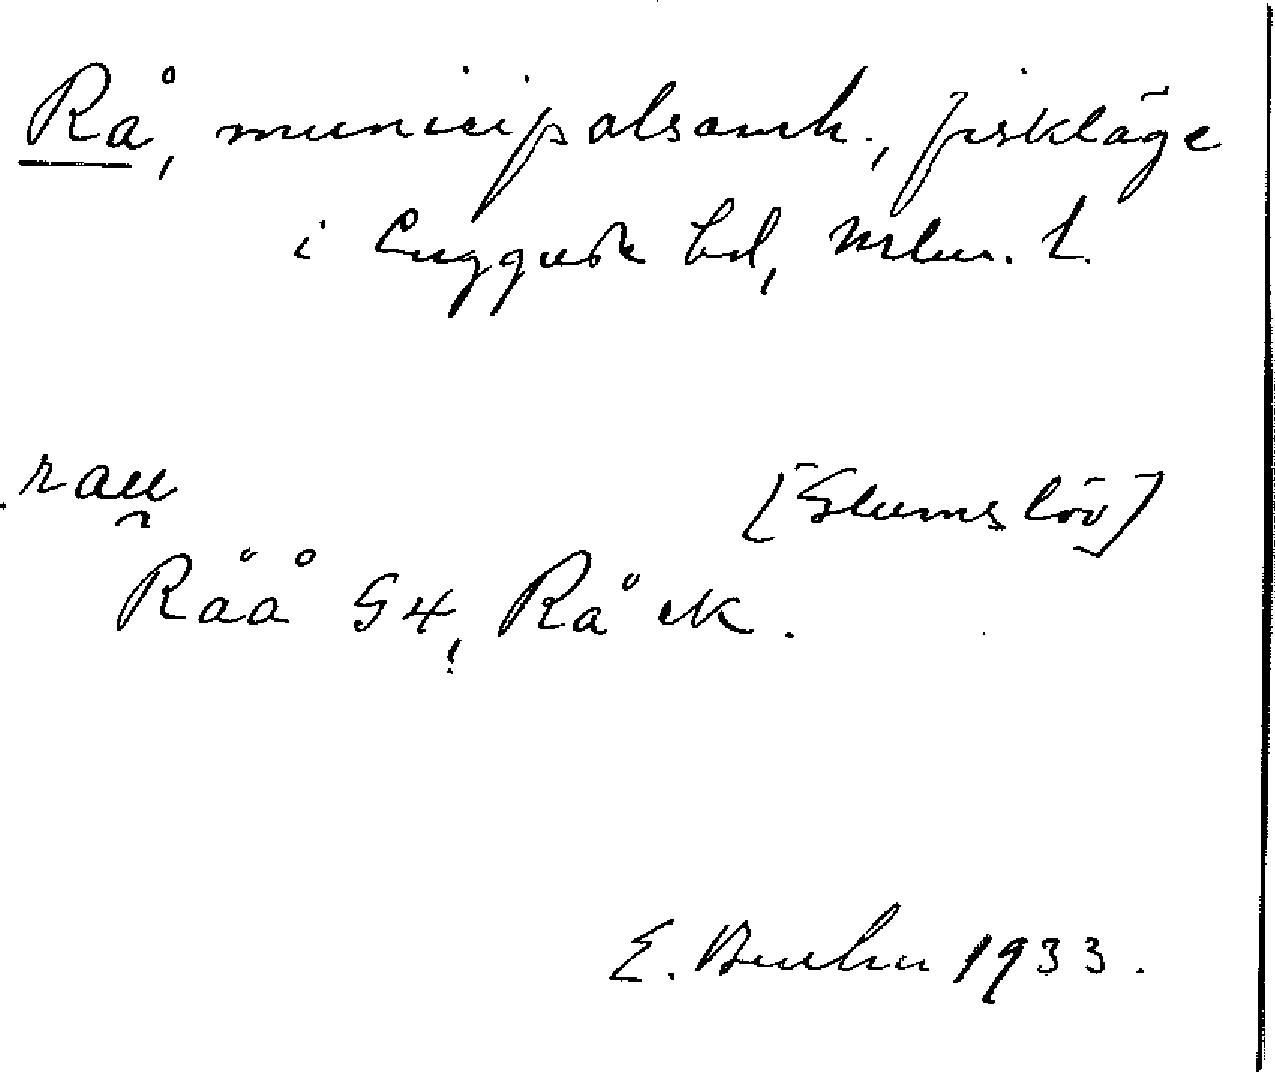 Rå, municipalsamh., fiskläge
i Luggude hd, Mlm. l.
rau̯ [Glumslöv]
Råå G4, Rå ek.
1933.